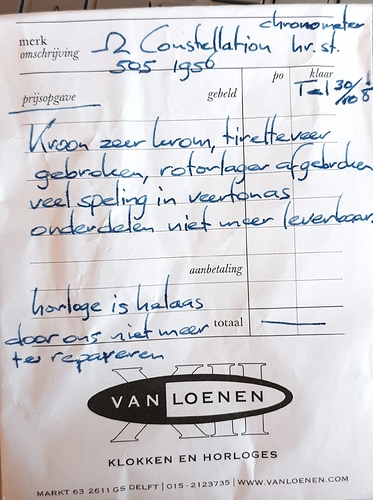 chronometer
merk Ω Constellation hr. st.
omschrijving 505 1956
po klaar
prijsopgave gebeld Tel 30/10
Kroon zeer krom, tiretteveer
gebroken, rotorlager afgebroken
veel speling in veertonas
onderdelen niet meer leverbaar.
aanbetaling
horloge is helaas
door ons niet meer totaal
te repareren
XII
VAN LOENEN
KLOKKEN EN HORLOGES
MARKT 63 2611 GS DELFT | 015-2123735 | WWW.VANLOENEN.COM